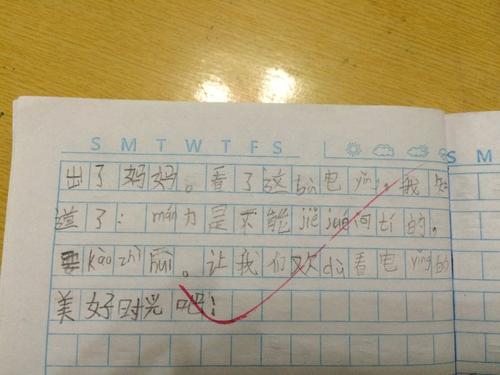 S M T W T F S
S M
出了妈妈。看了这bù电yǐng。我知
道了：mán力是不能jiě jué问tí的。
kào zhì huì。让我们欢dù看电yǐng的
美好时光吧！